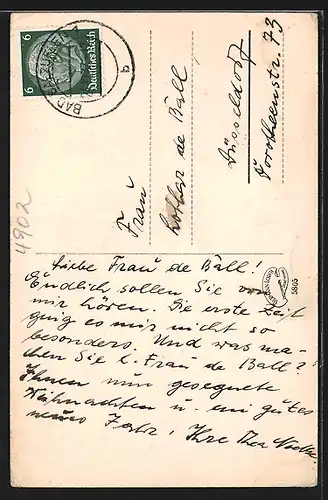 6 Deutsches Reich 6
BAD
b
Frau
Lothar de Ball
Düsseldorf
Dorotheenstr. 73
4902
5865
Liebe Frau de Ball!
Endlich sollen Sie von
mir hören. Die erste Zeit
ging es mir nicht so
besonders. Und was ma-
chen Sie l. Frau de Ball?
Ihnen nun gesegnete
Weihnachten u. ein gutes
neues Jahr, Ihre